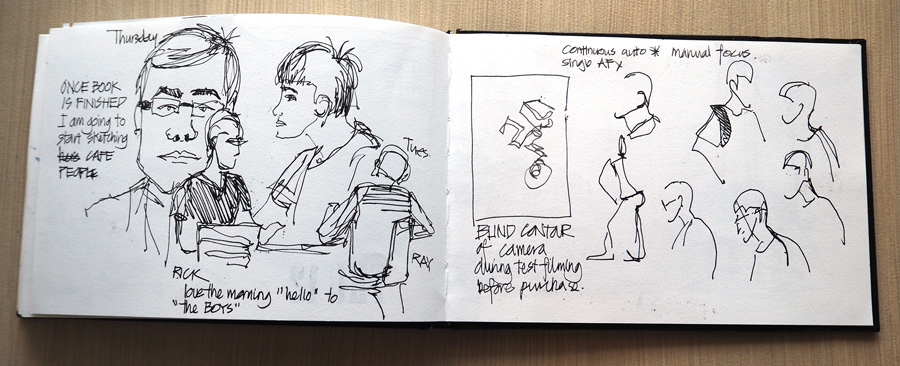 Thursday
ONCE BOOK
IS FINISHED
I am going to
start sketching
CAFE
PEOPLE
Tues
RAY
RICK
love the morning "hello" to
"the BOYS"
Continuous auto * manual focus.
single AFX
BLIND CONTAR
of camera
during test filming
before purchase.